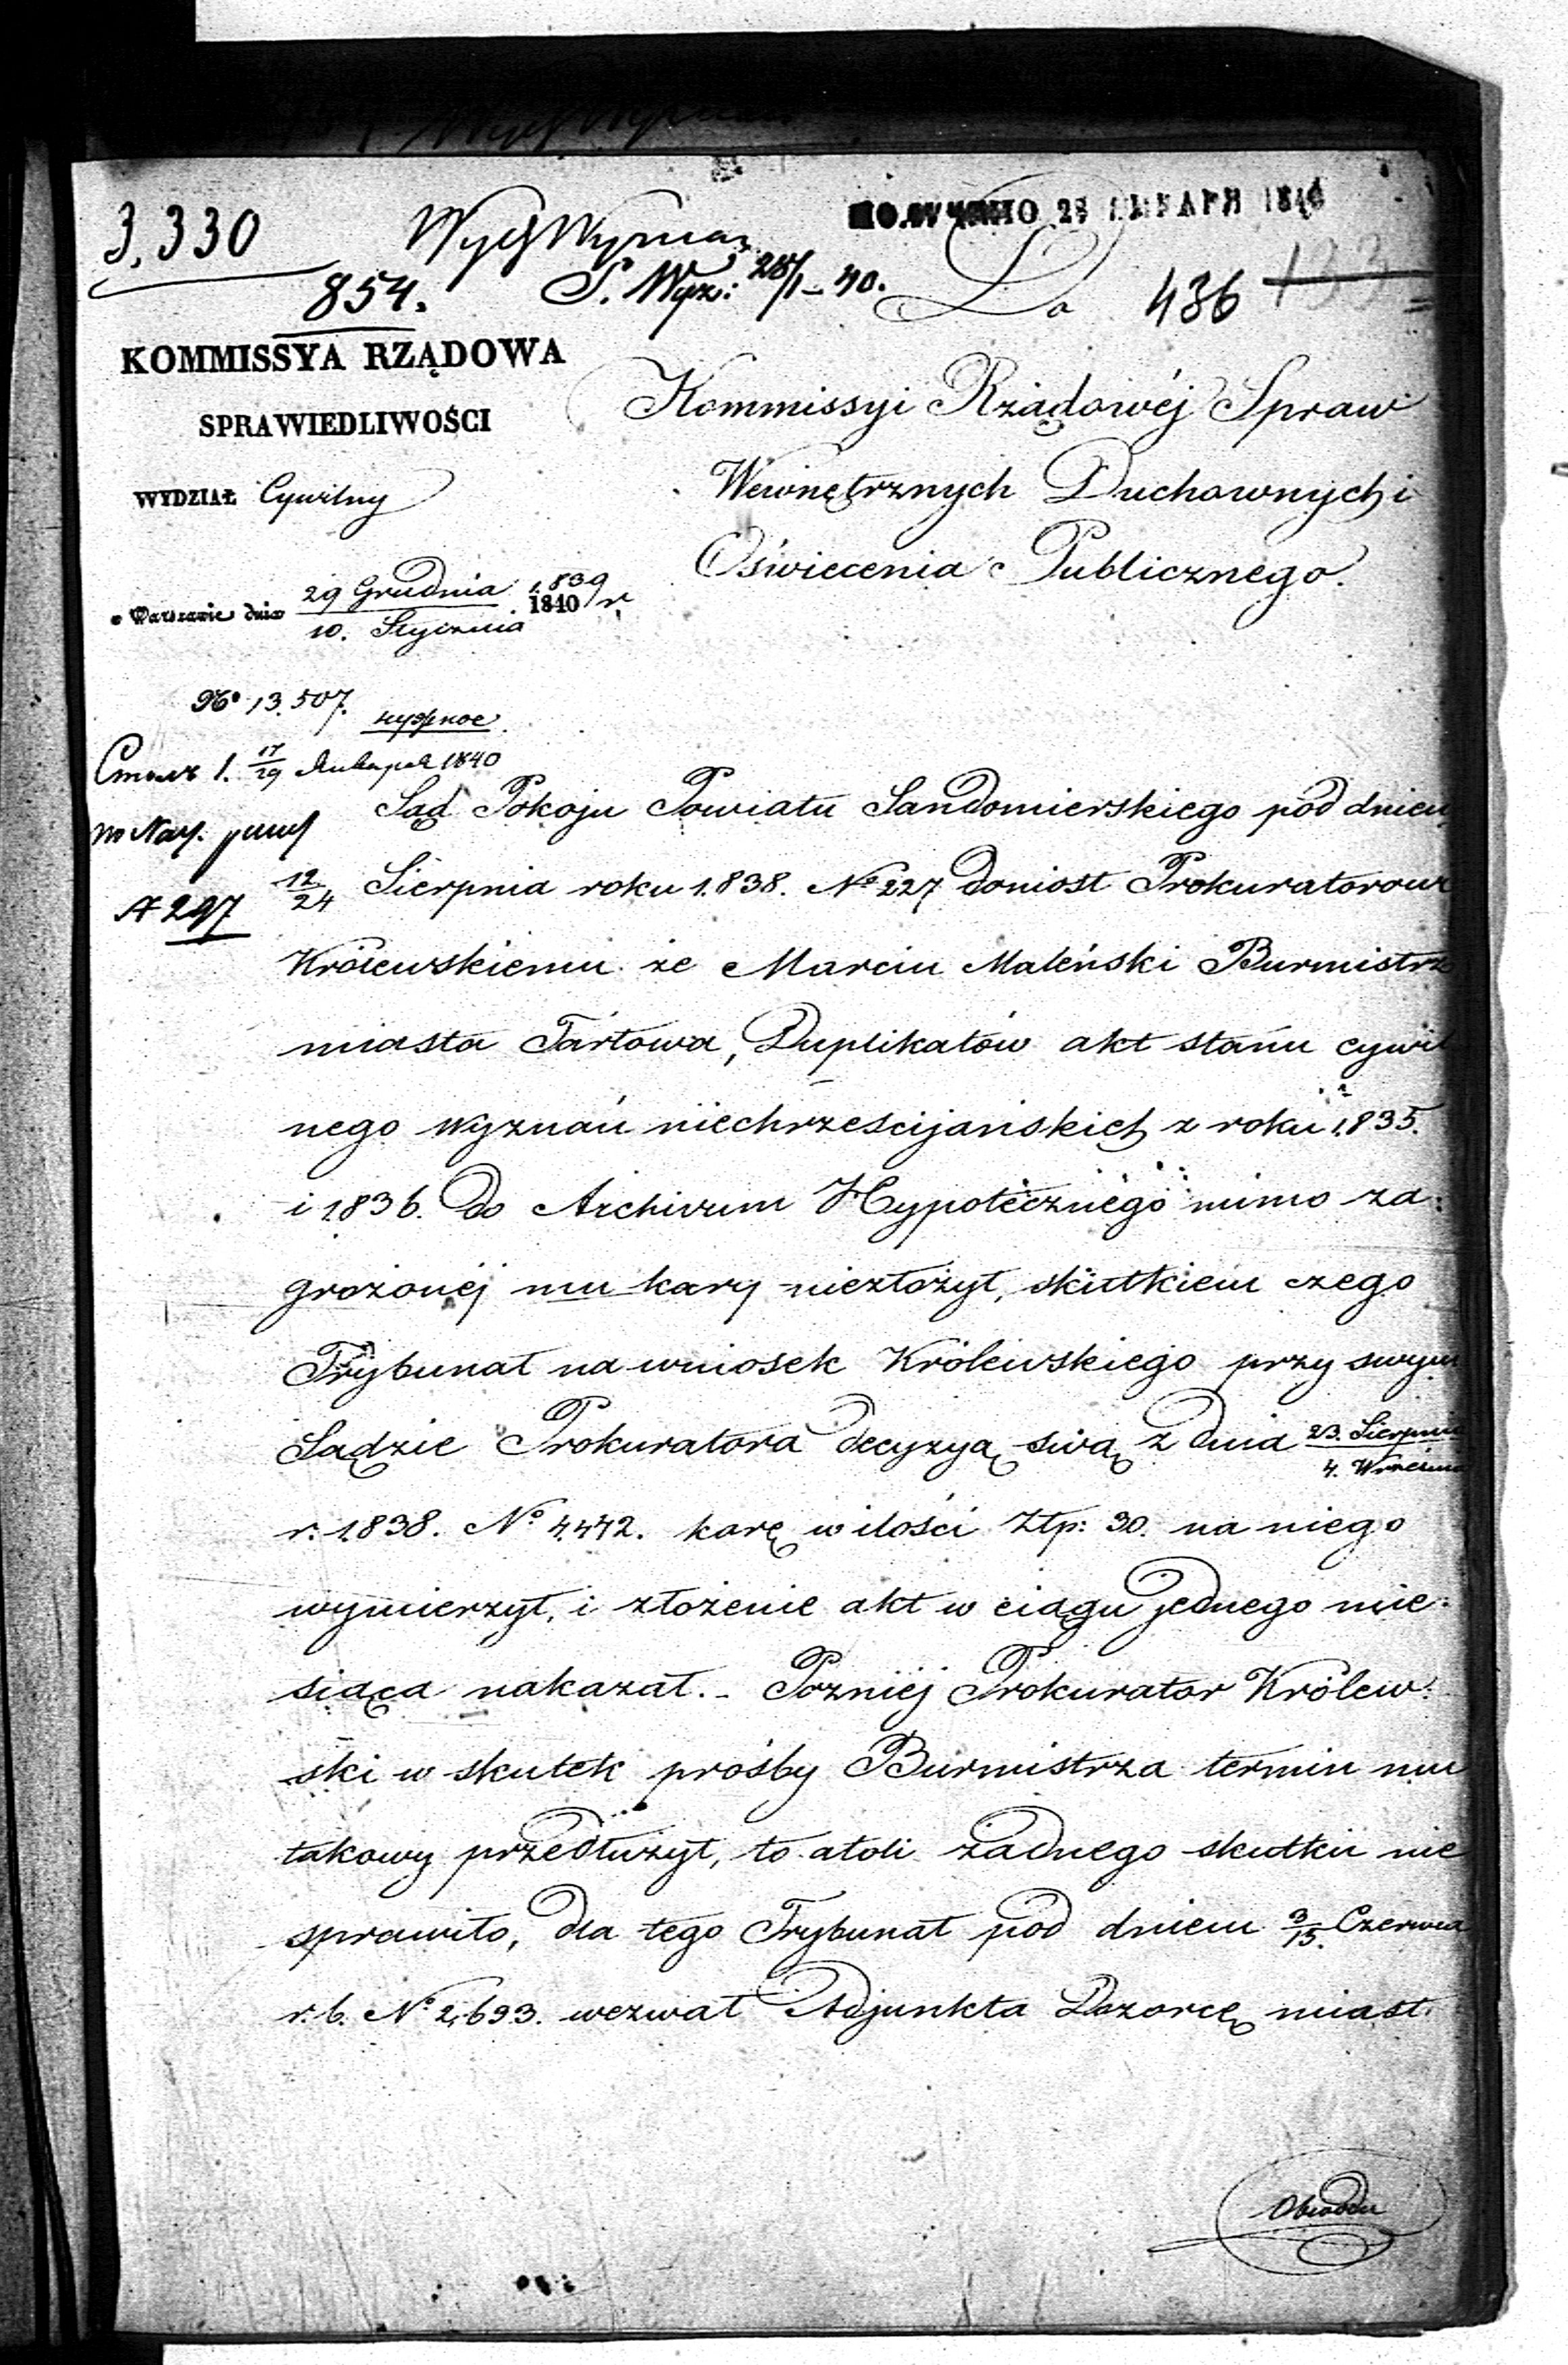 3,330
Wyzn
ПОЛУЧЕНО 28 ЯНВАРЯ 1840
854.
S. Wyz: 28/1 – 40.
Do
436
133
KOMMISSYA RZĄDOWA
SPRAWIEDLIWOŚCI
WYDZIAŁ Cywilny
Kommissyi Rządowéj Spraw
Wewnętrznych Duchownych i
Oświecenia Publicznego.
w Warszawie dnia 29 Grudnia 1839/10. Stycznia 1840 r.
No 13.507.
нужное
1. 17/29 Января 1840
Sąd Pokoju Powiatu Sandomierskiego pod dniem
No 297
12/24 Sierpnia roku 1838. No 227 doniosł Prokuratorowi
Królewskiemu że Marcin Maleński Burmistrz
miasta Tarłowa, Duplikatów akt stanu cywil
nego wyznań niechrześcijańskich z roku 1835.
i 1836. do Archivum Hypotecznego mimo za:
grożonéj mu kary niezłożył, skutkiem czego
Trybunał na wniosek Królewskiego przy swym
Sądzie Prokuratora decyzyą swą z dnia 23. Sierpnia/4. Września
r. 1838. No 4442. karę w ilości Złp: 30. na niego
wymierzył, i złożenie akt w ciągu jednego mie:
siąca nakazał. – Pozniéj Prokurator Królew:
ski w skutek prośby Burmistrza termin mu
takowy przedłużył, to atoli żadnego skutku nie
sprawiło, dla tego Trybunał pod dniem 3/15. Czerwca
r. b. No 2,693. wezwał Adjunkta Dozorcę miast